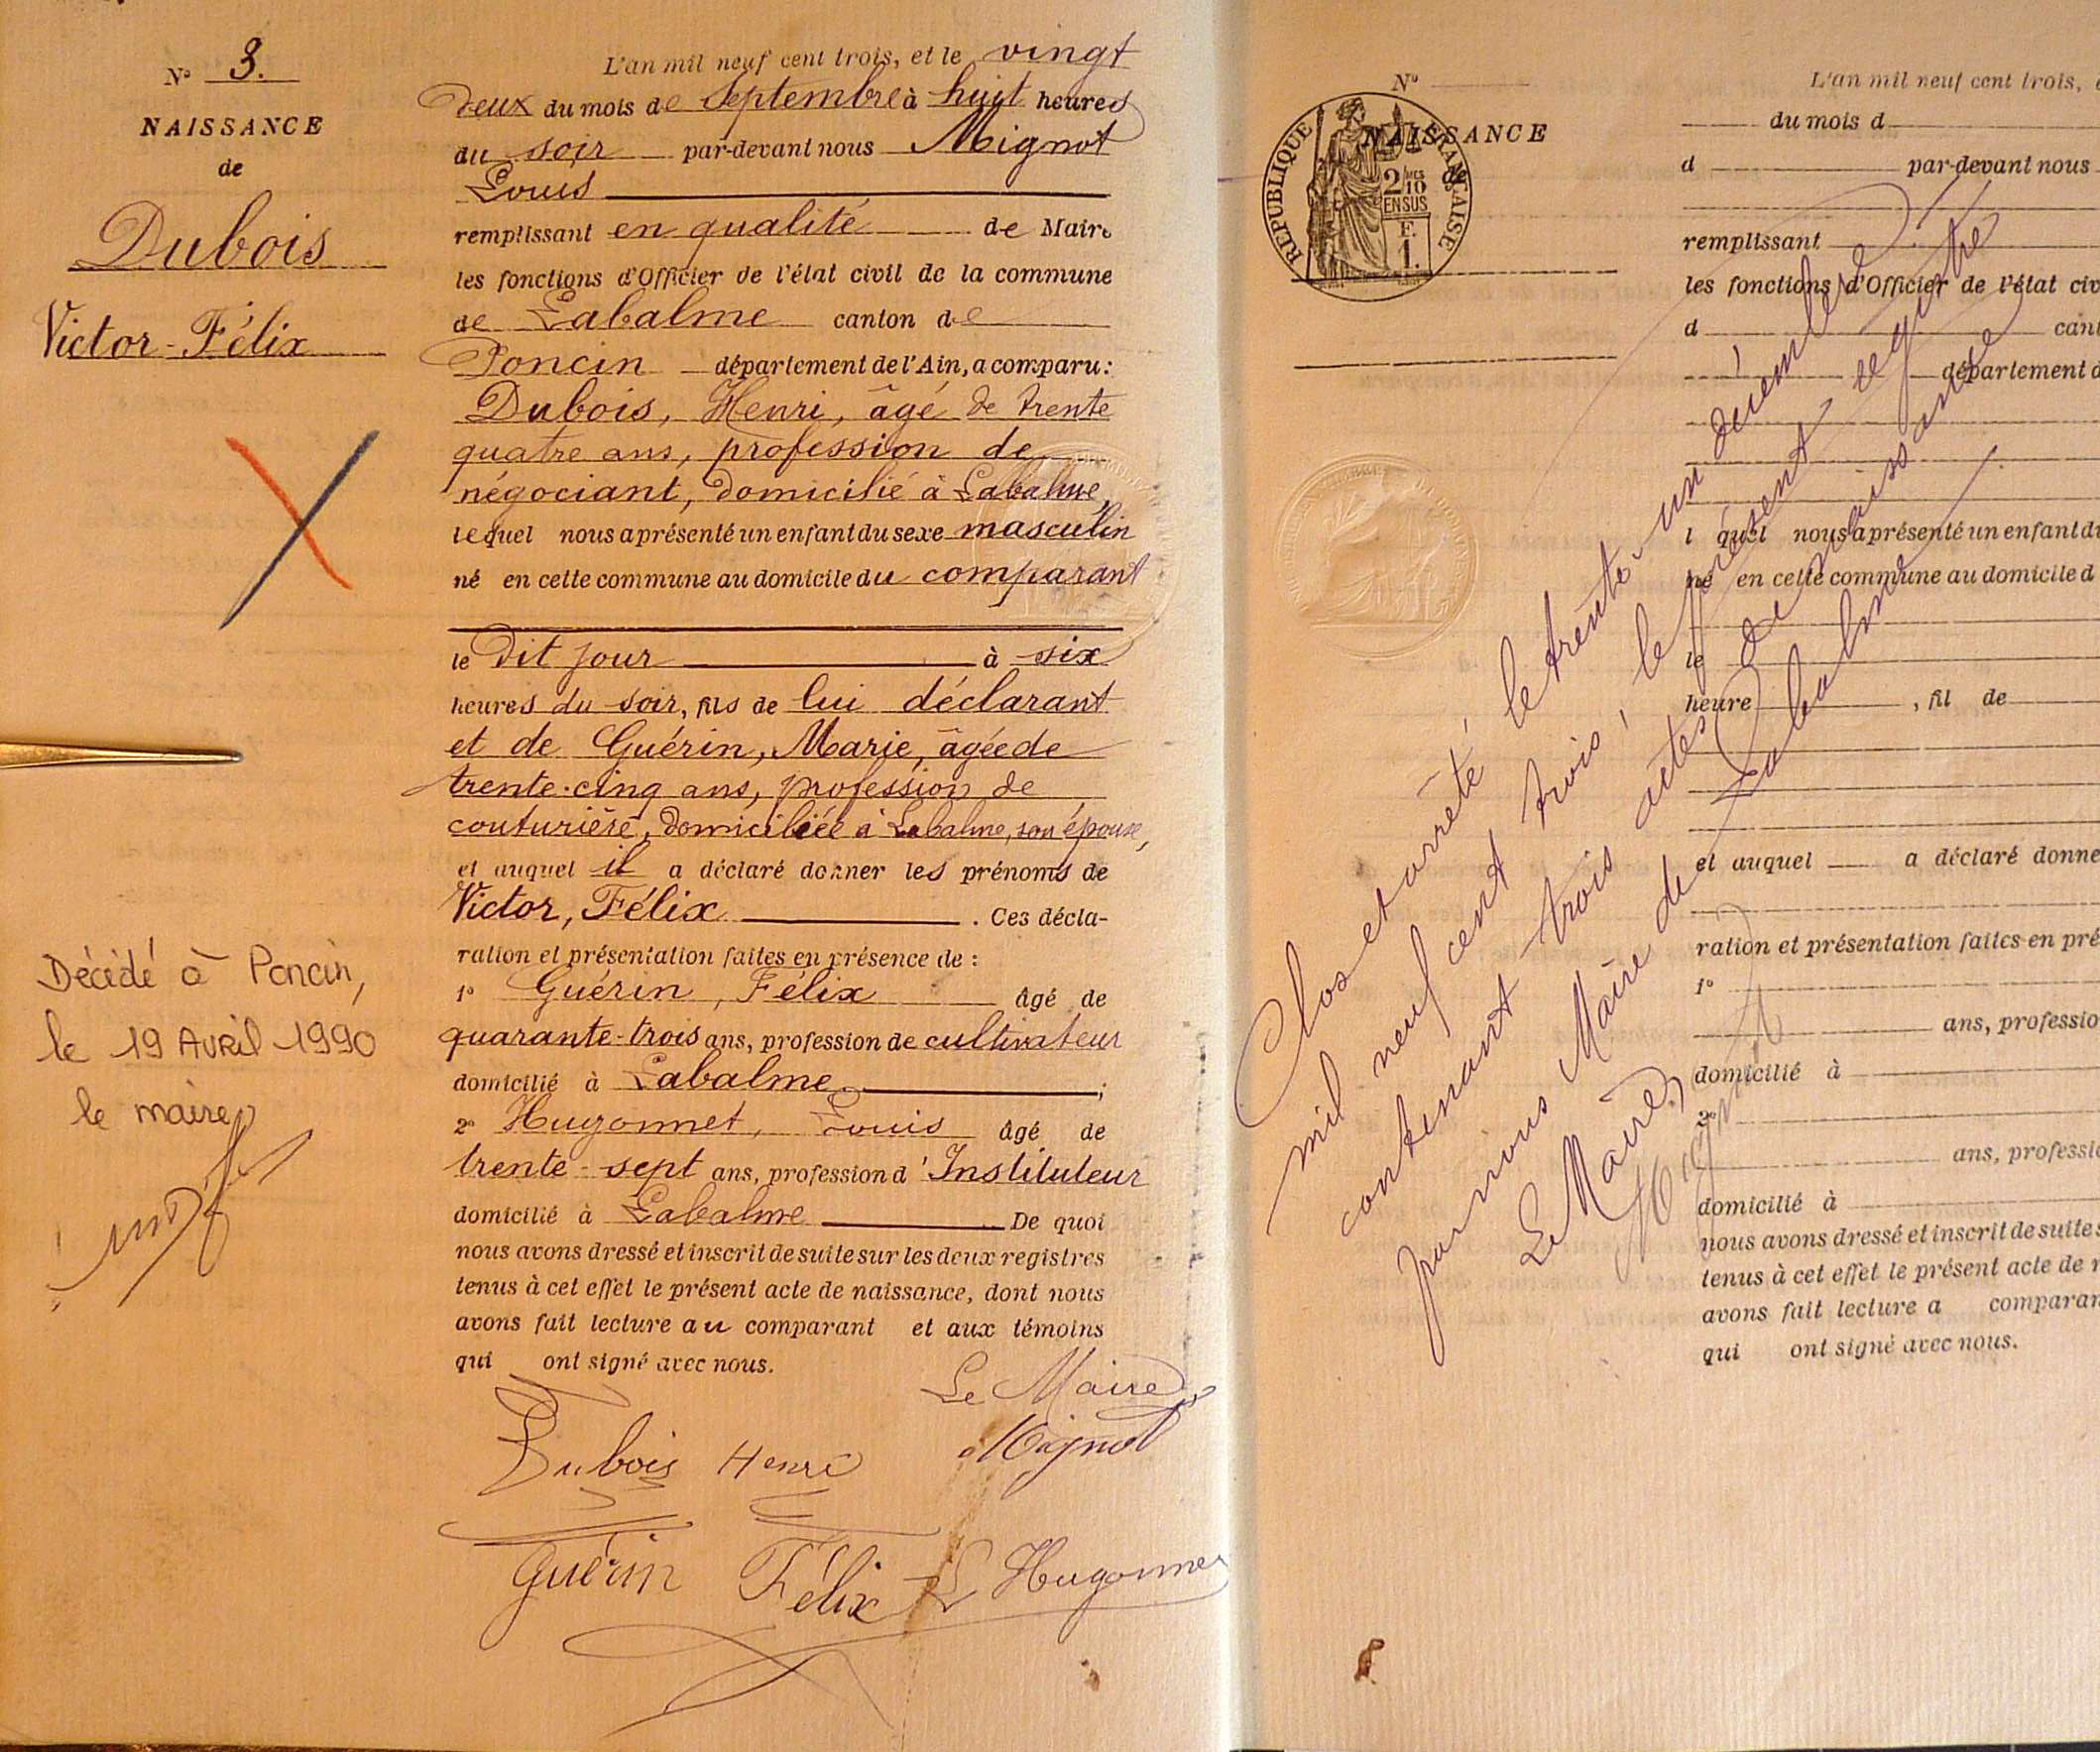 N° 3.
NAISSANCE
de
Dubois
Victor-Félix
Décédé à Poncin,
le 19 Avril 1990
le maire
L'an mil neuf cent trois, et le vingt
deux du mois de Septembre à huit heures
du soir par-devant nous Mignot
Louis
remplissant en qualité de Maire
les fonctions d'Officier de l'état civil de la commune
de Labalme canton de
Poncin département de l'Ain, a comparu:
Dubois, Henri, âgé de trente
quatre ans, profession de
négociant, domicilié à Labalme,
lequel nous a présenté un enfant du sexe masculin
né en cette commune au domicile du comparant
le dit jour à six
heures du soir, fils de lui déclarant
et de Guérin, Marie, âgée de
trente-cinq ans, profession de
couturière, domiciliée à Labalme, son épouse,
et auquel il a déclaré donner les prénoms de
Victor, Félix. Ces décla-
ration et présentation faites en présence de :
1° Guérin, Félix âgé de
quarante-trois ans, profession de cultivateur
domicilié à Labalme ;
2° Hugonnet, Louis âgé de
trente-sept ans, profession d'Instituteur
domicilié à Labalme De quoi
nous avons dressé et inscrit de suite sur les deux registres
tenus à cet effet le présent acte de naissance, dont nous
avons fait lecture au comparant et aux témoins
qui ont signé avec nous.
Le Maire
Mignot
Dubois Henri
Guérin Félix L Hugonnet
N°
NAISSANCE
de
REPUBLIQUE FRANÇAISE
2/10
EN SUS
F.
1.
L'an mil neuf cent trois,
du mois d
d par-devant nous
remplissant
les fonctions d'Officier de l'état civ
d cant
département d
l quel nous a présenté un enfant du
né en cette commune au domicile d
le
heure , fil de
et auquel a déclaré donne
ration et présentation faites en pré
1°
ans, professio
domicilié à
2°
ans, professio
domicilié à
nous avons dressé et inscrit de suite s
tenus à cet effet le présent acte de n
avons fait lecture a comparan
qui ont signé avec nous.
Clos et arrêté, le trente-un décembre
mil neuf cent trois, le présent registre
contenant trois actes de naissance
par nous Maire de Labalme.
Le Maire,
Mignot